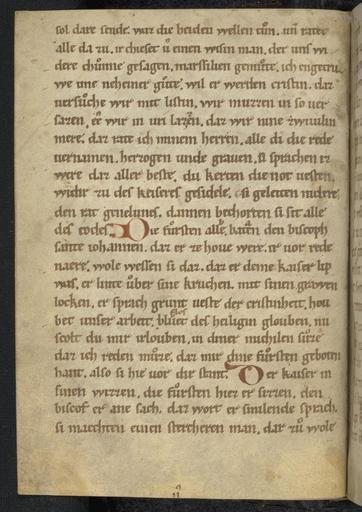 sol dare sende. war die beiden wellen tůn. un̄ ratet
alle da zu. ir chieset ů einen wisin man. der uns wi
dere chunne gesagen. marssilien gemůte. ich engetru
we ime neheiner gůte. wil er werden cristin. daz
uersůche wir mit listin. wir muzzen in so uer
sazen. ee wir in uri lazen. daz wir nine zwiuiln
mere. daz rate ich minem herren. alle di die rede
uernamen. herzogen unde grauen. si sprachen iz
were daz aller beste. du kerten die not uesten.
widir zu des keiseres gesidele. si geleiten nidere
den rat genelunes. dannen bedorften si sit alle
des todes. Die fursten alle. baten den biscoph
sancte iohannen. daz er ze houe were. ir uor rede
naere. wole wessen si daz. daz er deme kaiser lip
was. er hůte uber sine kruchen. mit sinen grawen
locken. er sprach grunt ueste der cristinheit. hou
bet unser arbeit. blůet des heiligin glouben. nu
scolt du mir irlouben. in diner michilen sůze
daz ich reden můze. daz mir dine fůrsten geboten
hant. also si hie uor dir stant. Der kaiser in
sinen wizzen. die fůrsten hiez er sizzen. den
biscof er ane sach. daz wort er smilende sprach.
si maechten einen stercheren man. dar zů wole